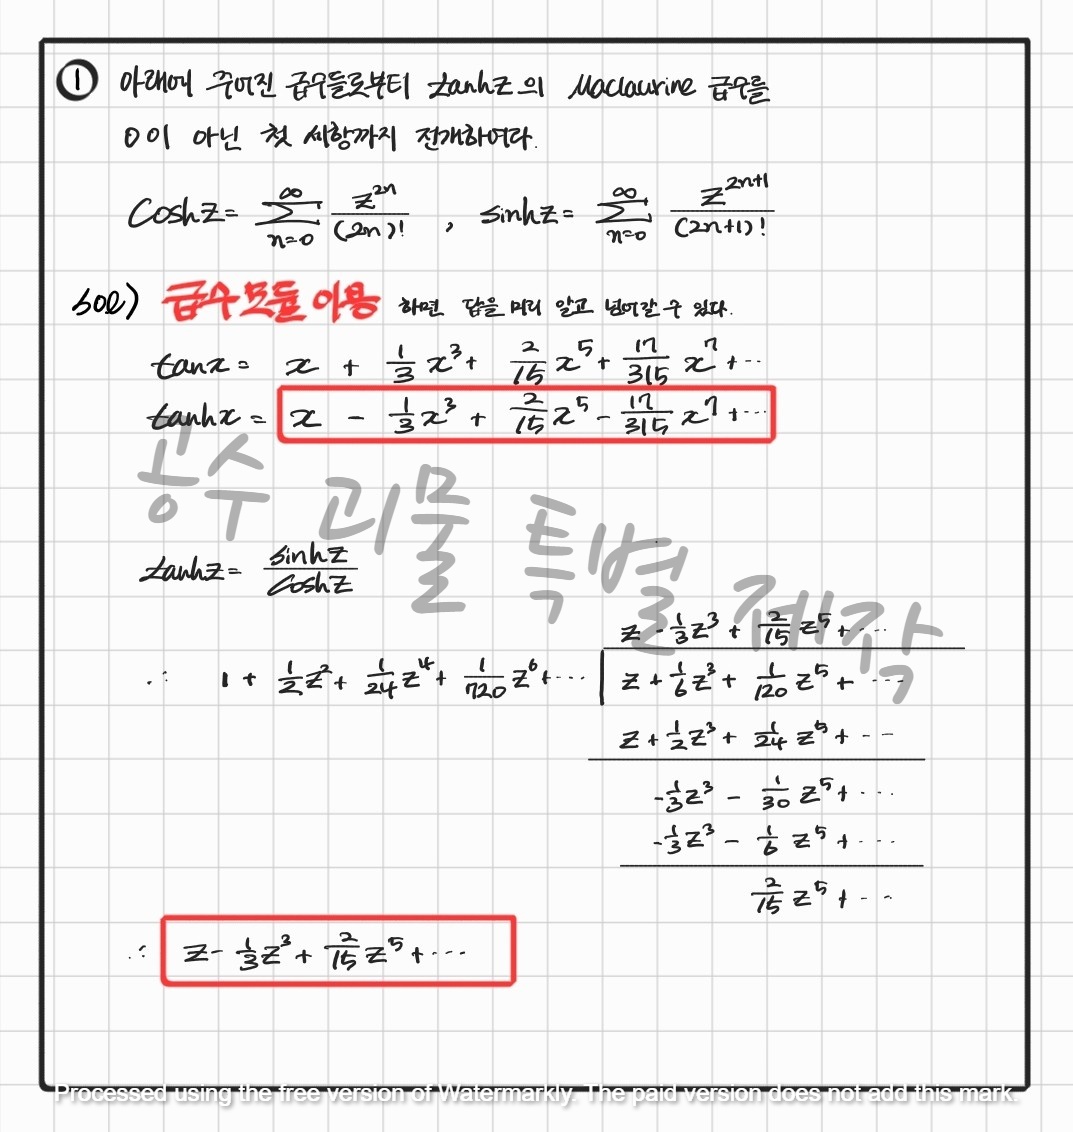 ① 아래에 주어진 급수들로부터 tanhz의 Maclaurine 급수를
0이 아닌 첫 세항까지 전개하여라.
Coshz = ∑_{n=0}^{∞} z^{2n}/(2n)! , sinhz = ∑_{n=0}^{∞} z^{2n+1}/(2n+1)!
sol) 급수모듈 이용 하면 답을 미리 알고 넘어갈 수 있다.
tanx = x + 1/3 x^3 + 2/15 x^5 + 17/315 x^7 + ...
tanhx = x - 1/3 x^3 + 2/15 x^5 - 17/315 x^7 + ...
공수 괴물 특별 제작
tanhz = sinhz/Coshz
z - 1/3 z^3 + 2/15 z^5 + ...
∴ 1 + 1/2 z^2 + 1/24 z^4 + 1/720 z^6 + ... | z + 1/6 z^3 + 1/120 z^5 + ...
z + 1/2 z^3 + 1/24 z^5 + ...
-1/3 z^3 - 1/30 z^5 + ...
-1/3 z^3 - 1/6 z^5 + ...
2/15 z^5 + ...
∴ z - 1/3 z^3 + 2/15 z^5 + ...
Processed using the free version of Watermarkly. The paid version does not add this mark.